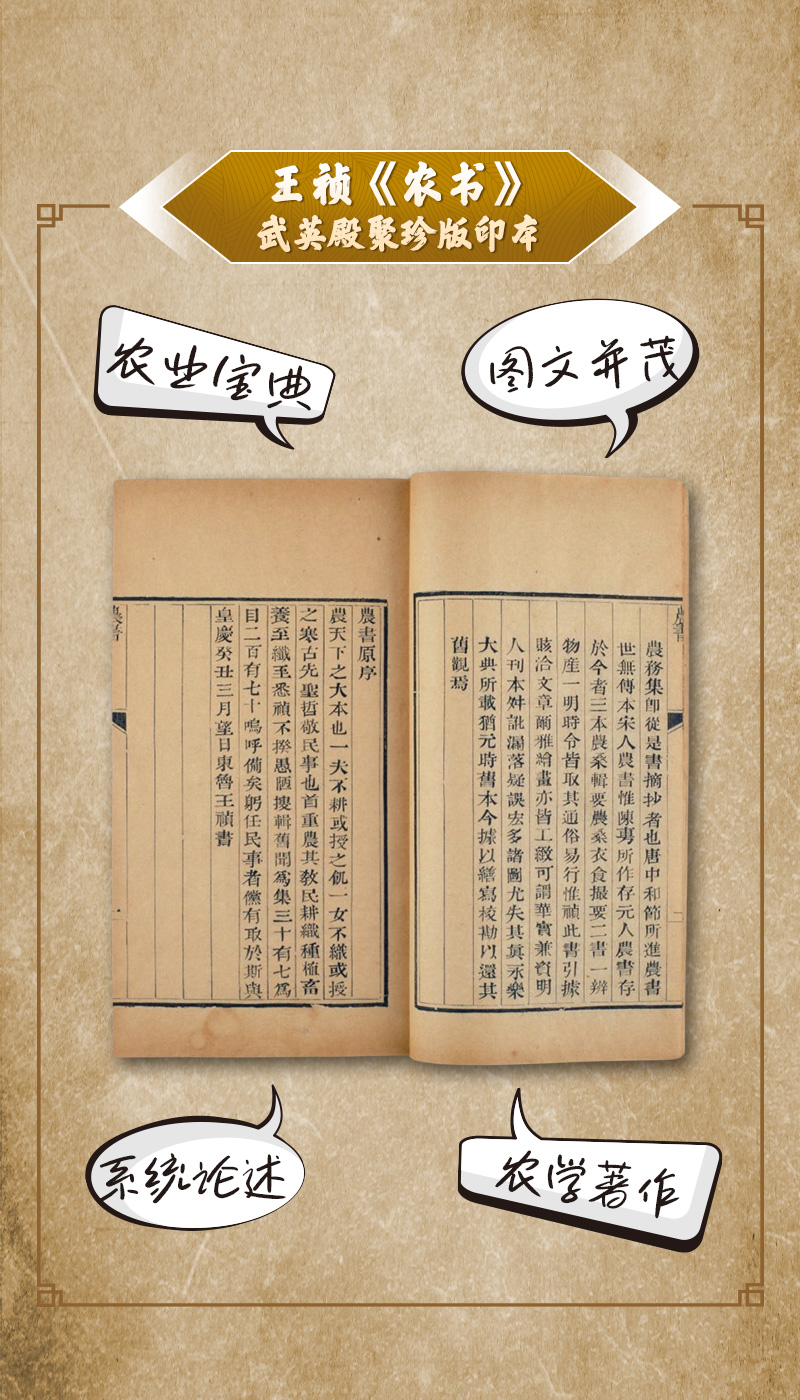 王祯《农书》
武英殿聚珍版印本
农业宝典
图文并茂
農務集卽從是書摘抄者也唐中和節所進農書
世無傳本宋人農書惟陳旉所作存元人農書存
於今者三本農桑輯要農桑衣食撮要二書一辨
物産一明時令皆取其通俗易行惟禎此書引據
賅洽文章爾雅繪畫亦皆工緻可謂華實兼資明
人刊本舛訛漏落疑誤宏多諸圖尤失其眞永樂
大典所載猶元時舊本今據以繕寫校勘以還其
舊觀焉
農書原序
農天下之大本也一夫不耕或授之飢一女不織或授
之寒古先聖哲敬民事也首重農其教民耕織種植畜
養至纖至悉禎不揆愚陋搜輯舊聞爲集三十有七爲
目二百有七十嗚呼備矣躬任民事者儻有取於斯與
皇慶癸丑三月望日東魯王禎書
農書
系统论述
农学著作